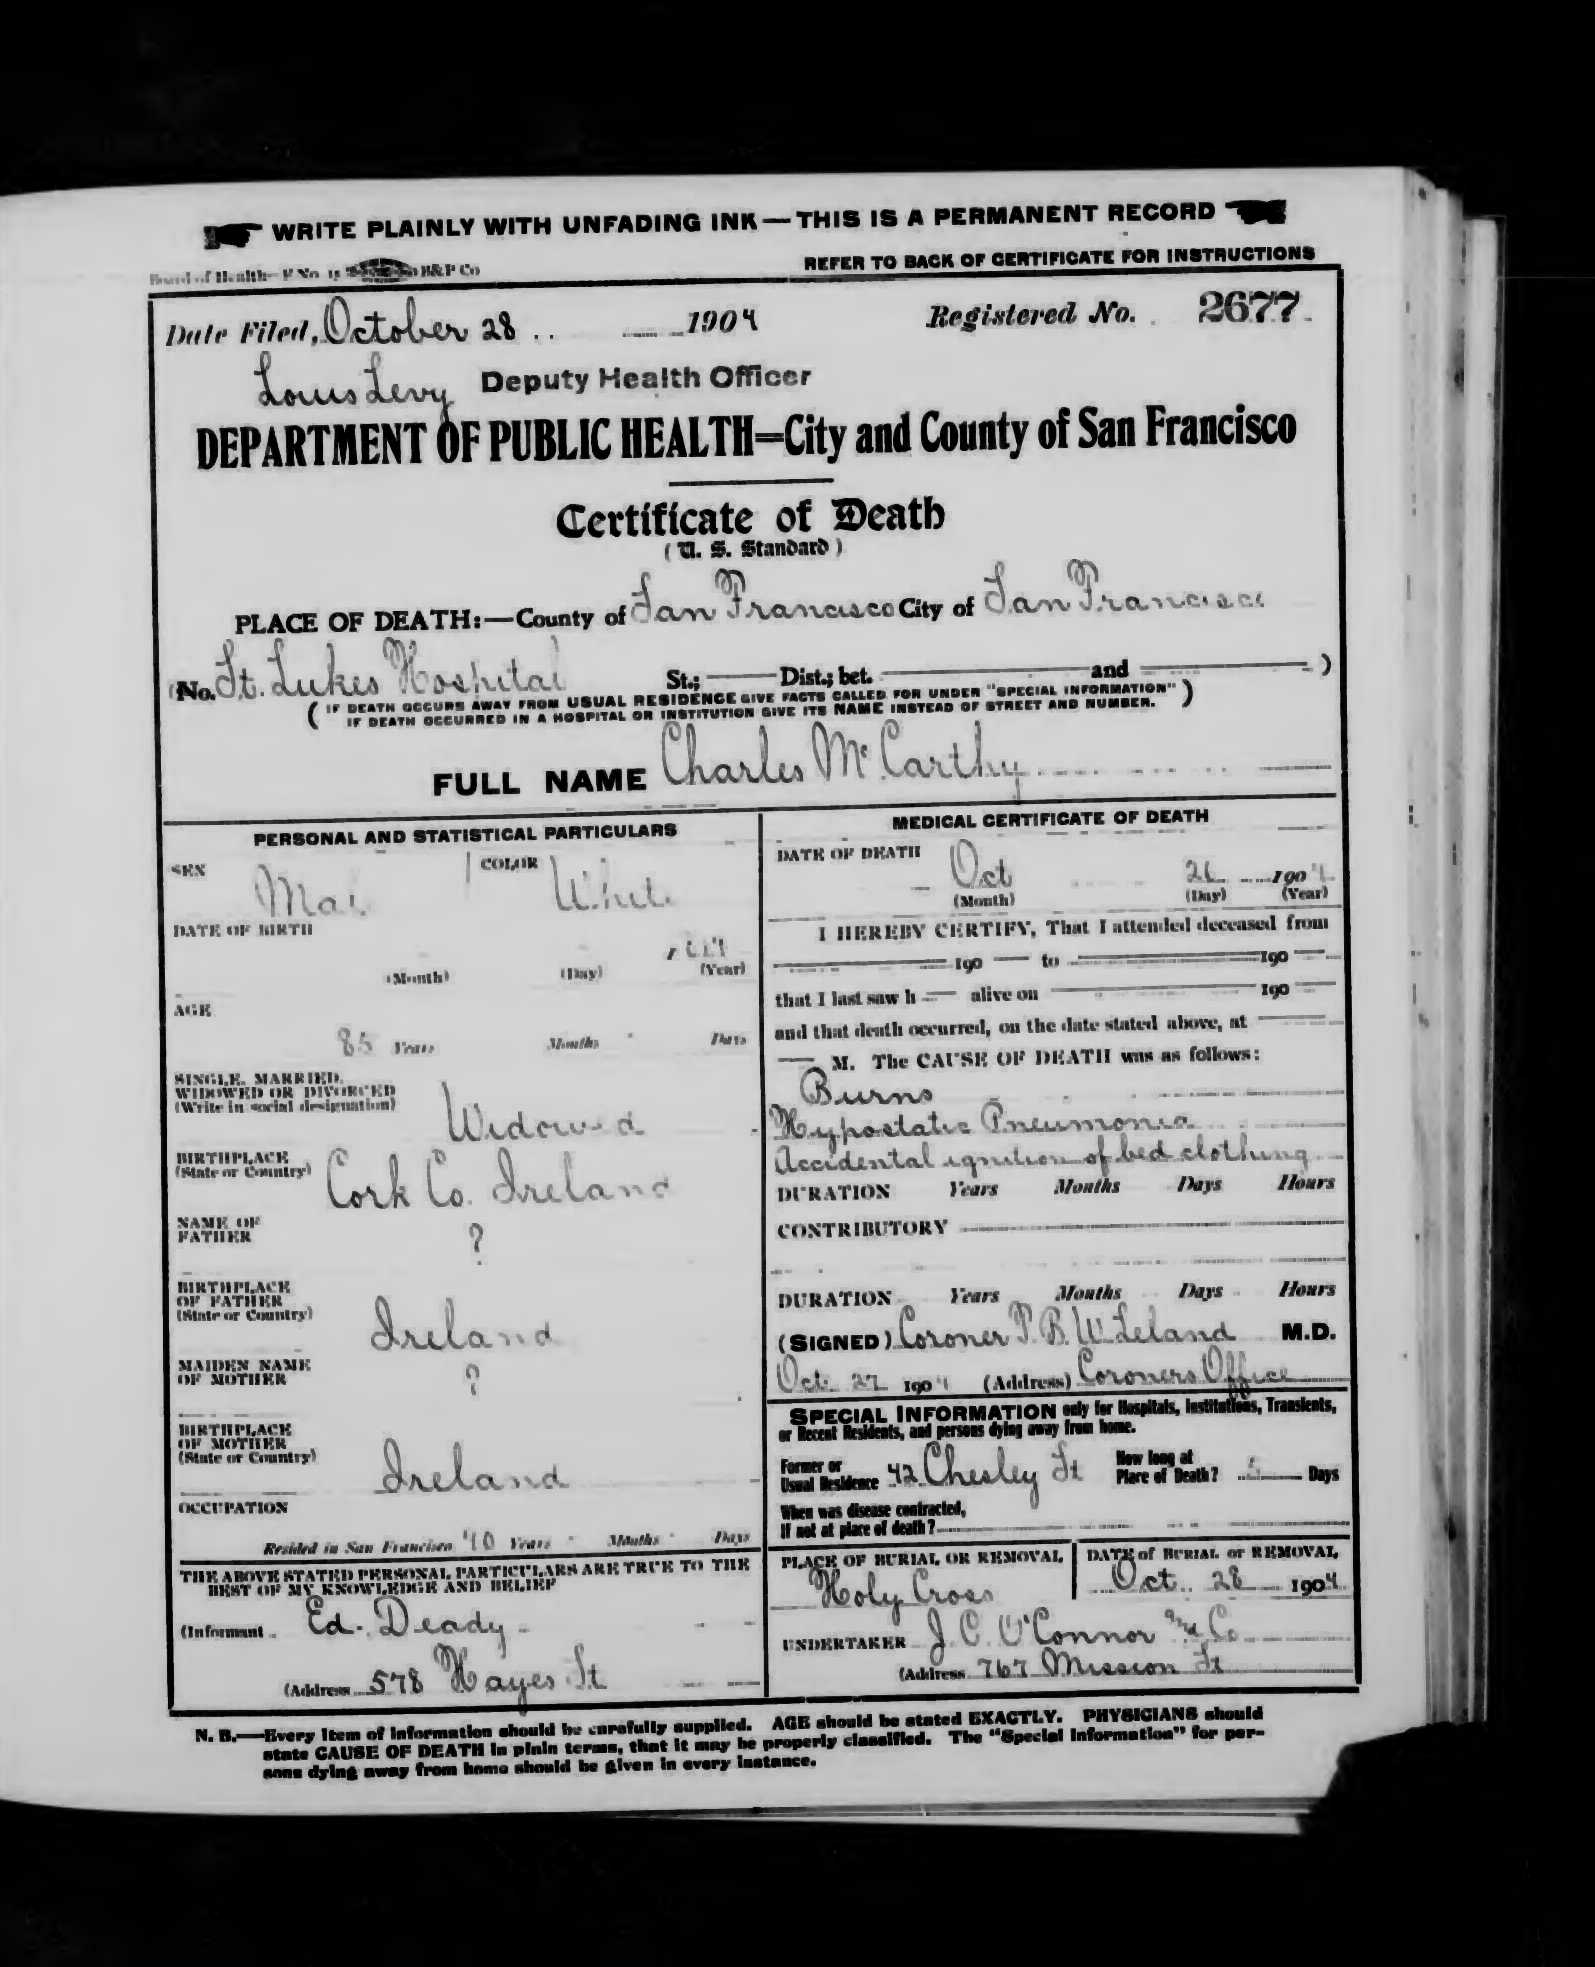 WRITE PLAINLY WITH UNFADING INK — THIS IS A PERMANENT RECORD
Board of Health— F No. 11 B&P Co
REFER TO BACK OF CERTIFICATE FOR INSTRUCTIONS
Date Filed, October 28 1904 Registered No. 2677
Louis Levy Deputy Health Officer
DEPARTMENT OF PUBLIC HEALTH=City and County of San Francisco
Certificate of Death
(U. S. Standard)
PLACE OF DEATH:—County of San Francisco City of San Francisco
(No. St. Lukes Hospital St.; Dist.; bet. and )
( IF DEATH OCCURS AWAY FROM USUAL RESIDENCE GIVE FACTS CALLED FOR UNDER "SPECIAL INFORMATION" )
IF DEATH OCCURRED IN A HOSPITAL OR INSTITUTION GIVE ITS NAME INSTEAD OF STREET AND NUMBER.
FULL NAME Charles Mc.Carthy
PERSONAL AND STATISTICAL PARTICULARS
SEX COLOR
Mal White
DATE OF BIRTH
(Month) (Day) (Year)
AGE
85 Years Months Days
SINGLE, MARRIED,
WIDOWED OR DIVORCED
(Write in social designation)
Widowed
BIRTHPLACE
(State or Country)
Cork Co. Ireland
NAME OF
FATHER
?
BIRTHPLACE
OF FATHER
(State or Country)
Ireland
MAIDEN NAME
OF MOTHER
?
BIRTHPLACE
OF MOTHER
(State or Country)
Ireland
OCCUPATION
Resided in San Francisco 40 Years Months Days
THE ABOVE STATED PERSONAL PARTICULARS ARE TRUE TO THE
BEST OF MY KNOWLEDGE AND BELIEF
(Informant Ed. Deady
(Address 578 Hayes St
MEDICAL CERTIFICATE OF DEATH
DATE OF DEATH
Oct 26 1904
(Month) (Day) (Year)
I HEREBY CERTIFY, That I attended deceased from
190 to 190
that I last saw h alive on 190
and that death occurred, on the date stated above, at
M. The CAUSE OF DEATH was as follows:
Burns
Hypostatic Pneumonia
Accidental ignition of bed clothing
DURATION Years Months Days Hours
CONTRIBUTORY
DURATION Years Months Days Hours
(SIGNED) Coroner T. B. W. Leland M.D.
Oct. 27 1904 (Address) Coroners Office
SPECIAL INFORMATION only for Hospitals, Institutions, Transients,
or Recent Residents, and persons dying away from home.
Former or
Usual Residence 42 Chesley St
How long at
Place of Death? Days
When was disease contracted,
If not at place of death?
PLACE OF BURIAL OR REMOVAL
Holy Cross
DATE of BURIAL or REMOVAL
Oct. 28 1904
UNDERTAKER J. C. O'Connor and Co
(Address 767 Mission St
N. B.—Every item of information should be carefully supplied. AGE should be stated EXACTLY. PHYSICIANS should
state CAUSE OF DEATH in plain terms, that it may be properly classified. The "Special Information" for per-
sons dying away from home should be given in every instance.